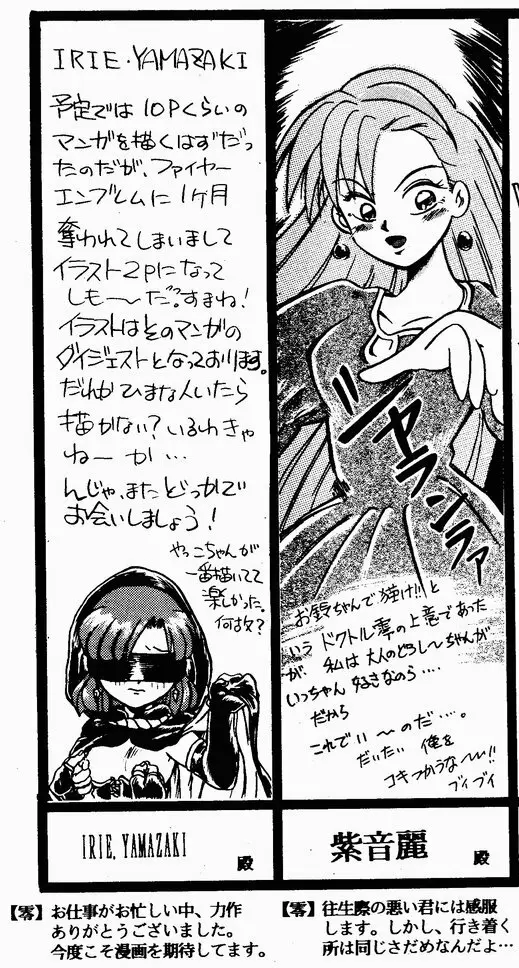 IRIE・YAMAZAKI
予定では10Pくらいの
マンガを描くはずだっ
たのだが、ファイヤー
エンブレムに1ヶ月
奪われてしまいまして
イラスト2Pになって
しも〜〜だ?すまね!
イラストはそのマンガの
ダイジェストとなっております。
だれか ひまな人いたら
描かない?いるわきゃ
ねーか…
んじゃ、またどっかで
お会いしましょう!
やっこちゃんが
一番描いてて
楽しかった。
何故?
IRIE, YAMAZAKI
殿
【零】お仕事がお忙しい中、力作
ありがとうございました。
今度こそ漫画を期待してます。
シャランラァ
お鈴ちゃんで強け!!と
いう ドクトル零の上意であった
が、私は大人のどろし〜ちゃんが
いっちゃん 好きなのら・・・・
だから
これでい〜のだ・・・。
だいたい 俺を
コキつかうな〜!!
ブイブイ
紫音麗
殿
【零】往生際の悪い君には感服
します。しかし、行き着く
所は同じさだめなんだよ…